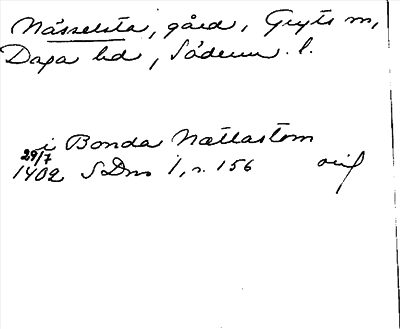 Nässelsta, gård, Gryts sn,
Daga hd, Söderm. l.
i Bonda Nætlastom
29/7
1402 SDns 1, n. 156 orig